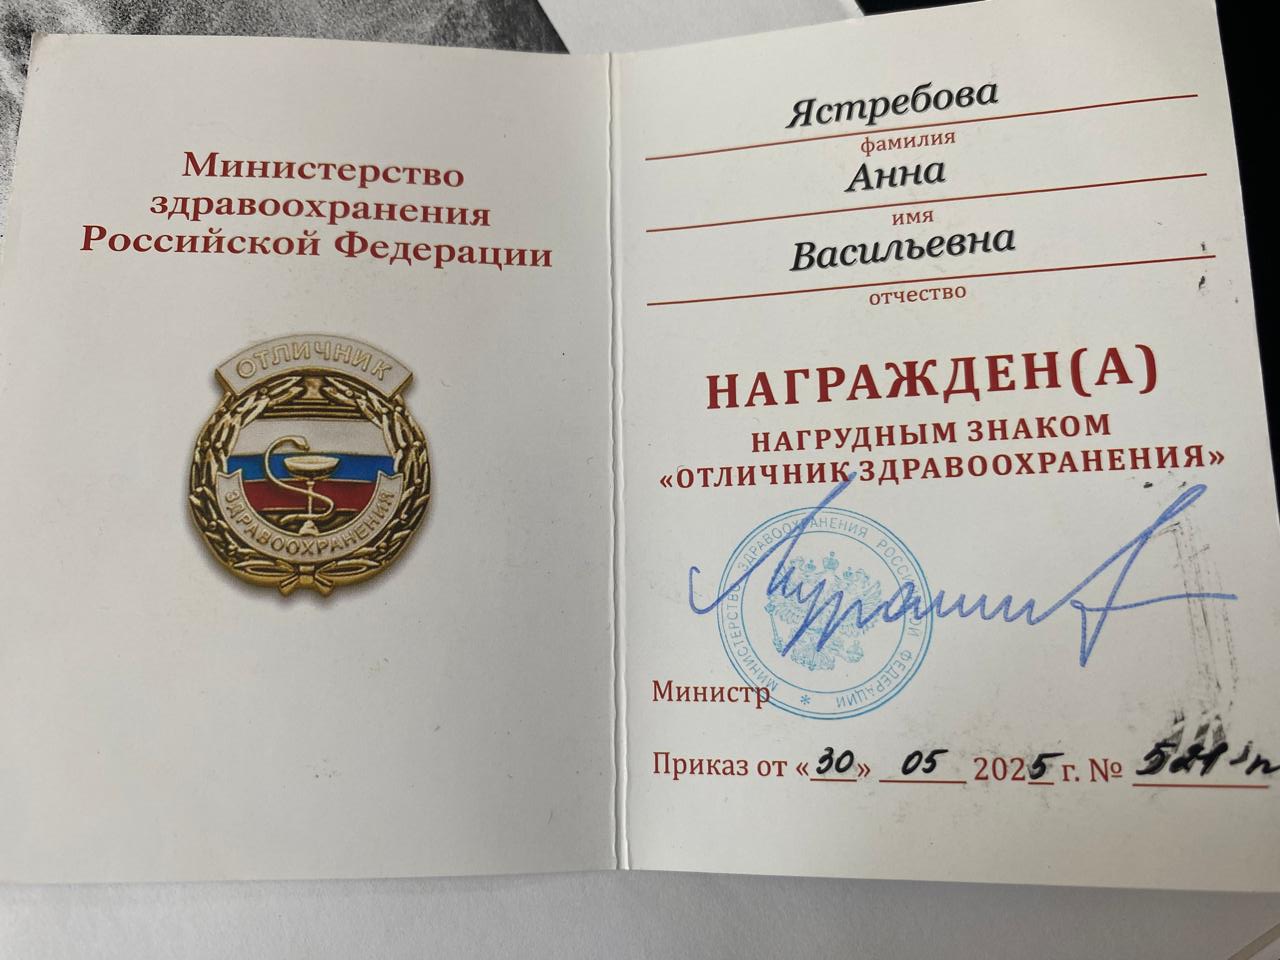 Министерство
здравоохранения
Российской Федерации
ОТЛИЧНИК
ЗДРАВООХРАНЕНИЯ
Ястребова
фамилия
Анна
имя
Васильевна
отчество
НАГРАЖДЕН(А)
НАГРУДНЫМ ЗНАКОМ
«ОТЛИЧНИК ЗДРАВООХРАНЕНИЯ»
МИНИСТЕРСТВО ЗДРАВООХРАНЕНИЯ РОССИЙСКОЙ ФЕДЕРАЦИИ *
Министр
Приказ от «30» 05 2025 г. №